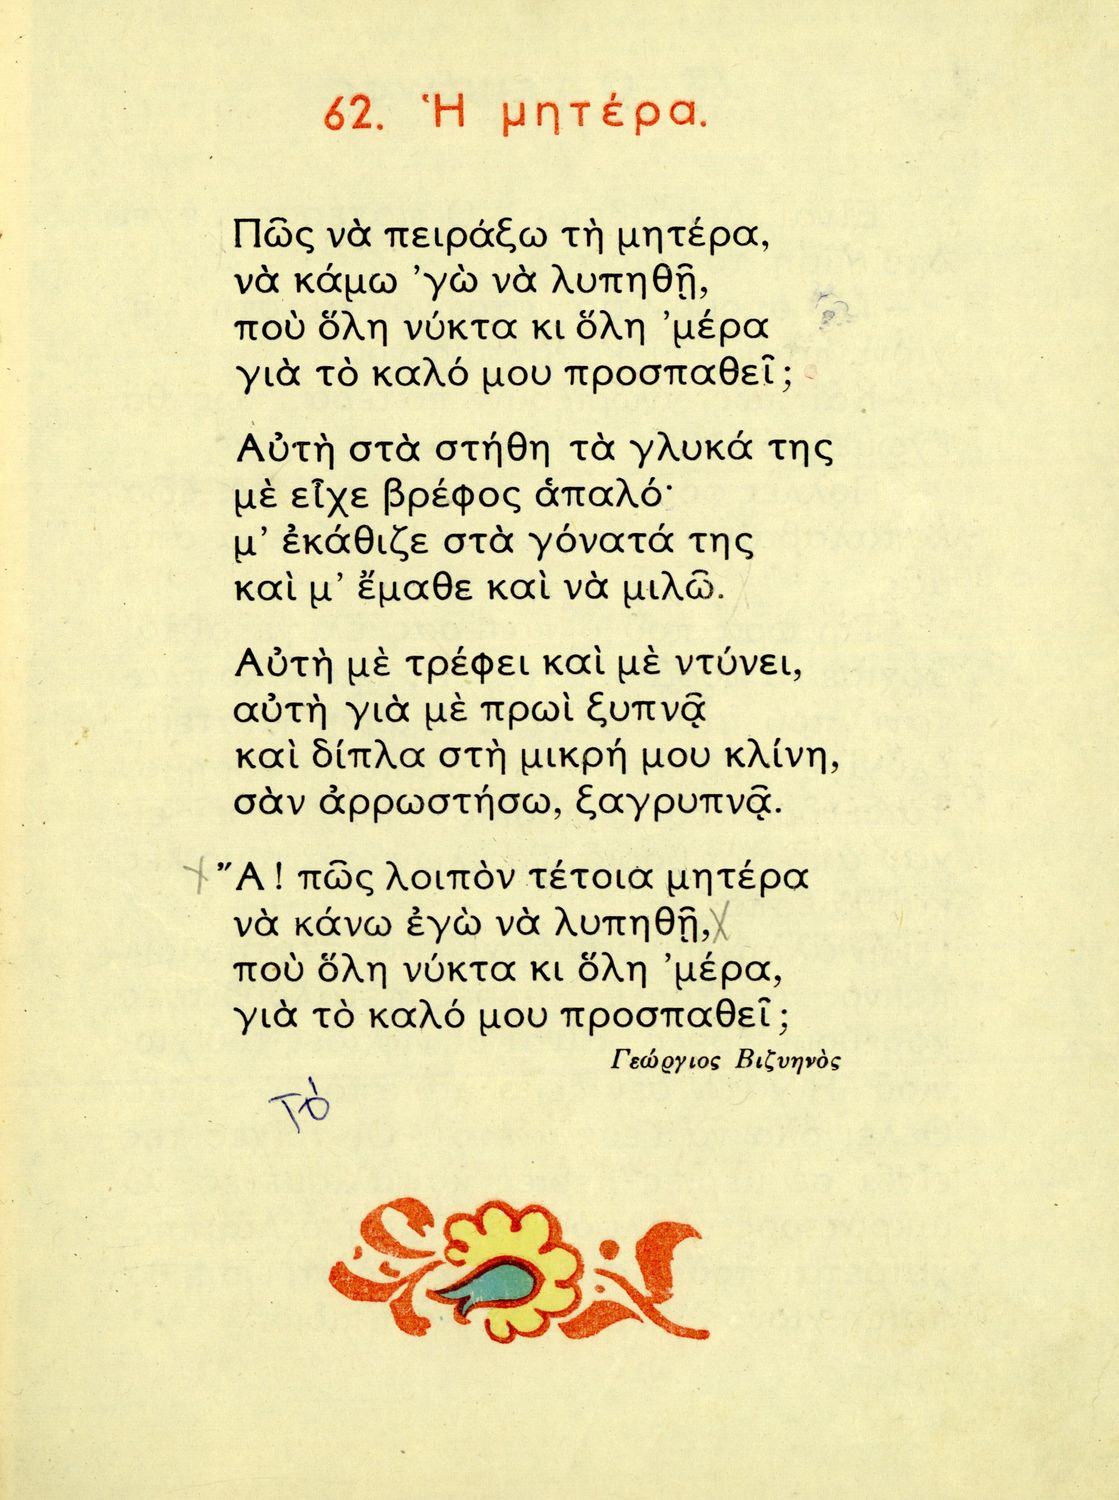 62. Ἡ μητέρα.
Πῶς νὰ πειράξω τὴ μητέρα,
νὰ κάμω ’γὼ νὰ λυπηθῇ,
ποὺ ὅλη νύκτα κι ὅλη ’μέρα
γιὰ τὸ καλό μου προσπαθεῖ;
Αὐτὴ στὰ στήθη τὰ γλυκά της
μὲ εἶχε βρέφος ἁπαλό·
μ’ ἐκάθιζε στὰ γόνατά της
καὶ μ’ ἔμαθε καὶ νὰ μιλῶ.
Αὐτὴ μὲ τρέφει καὶ μὲ ντύνει,
αὐτὴ γιὰ μὲ πρωὶ ξυπνᾷ
καὶ δίπλα στὴ μικρή μου κλίνη,
σὰν ἀρρωστήσω, ξαγρυπνᾷ.
Ἄ! πῶς λοιπὸν τέτοια μητέρα
νὰ κάνω ἐγὼ νὰ λυπηθῇ,
ποὺ ὅλη νύκτα κι ὅλη ’μέρα,
γιὰ τὸ καλό μου προσπαθεῖ;
Γεώργιος Βιζυηνὸς
Τό